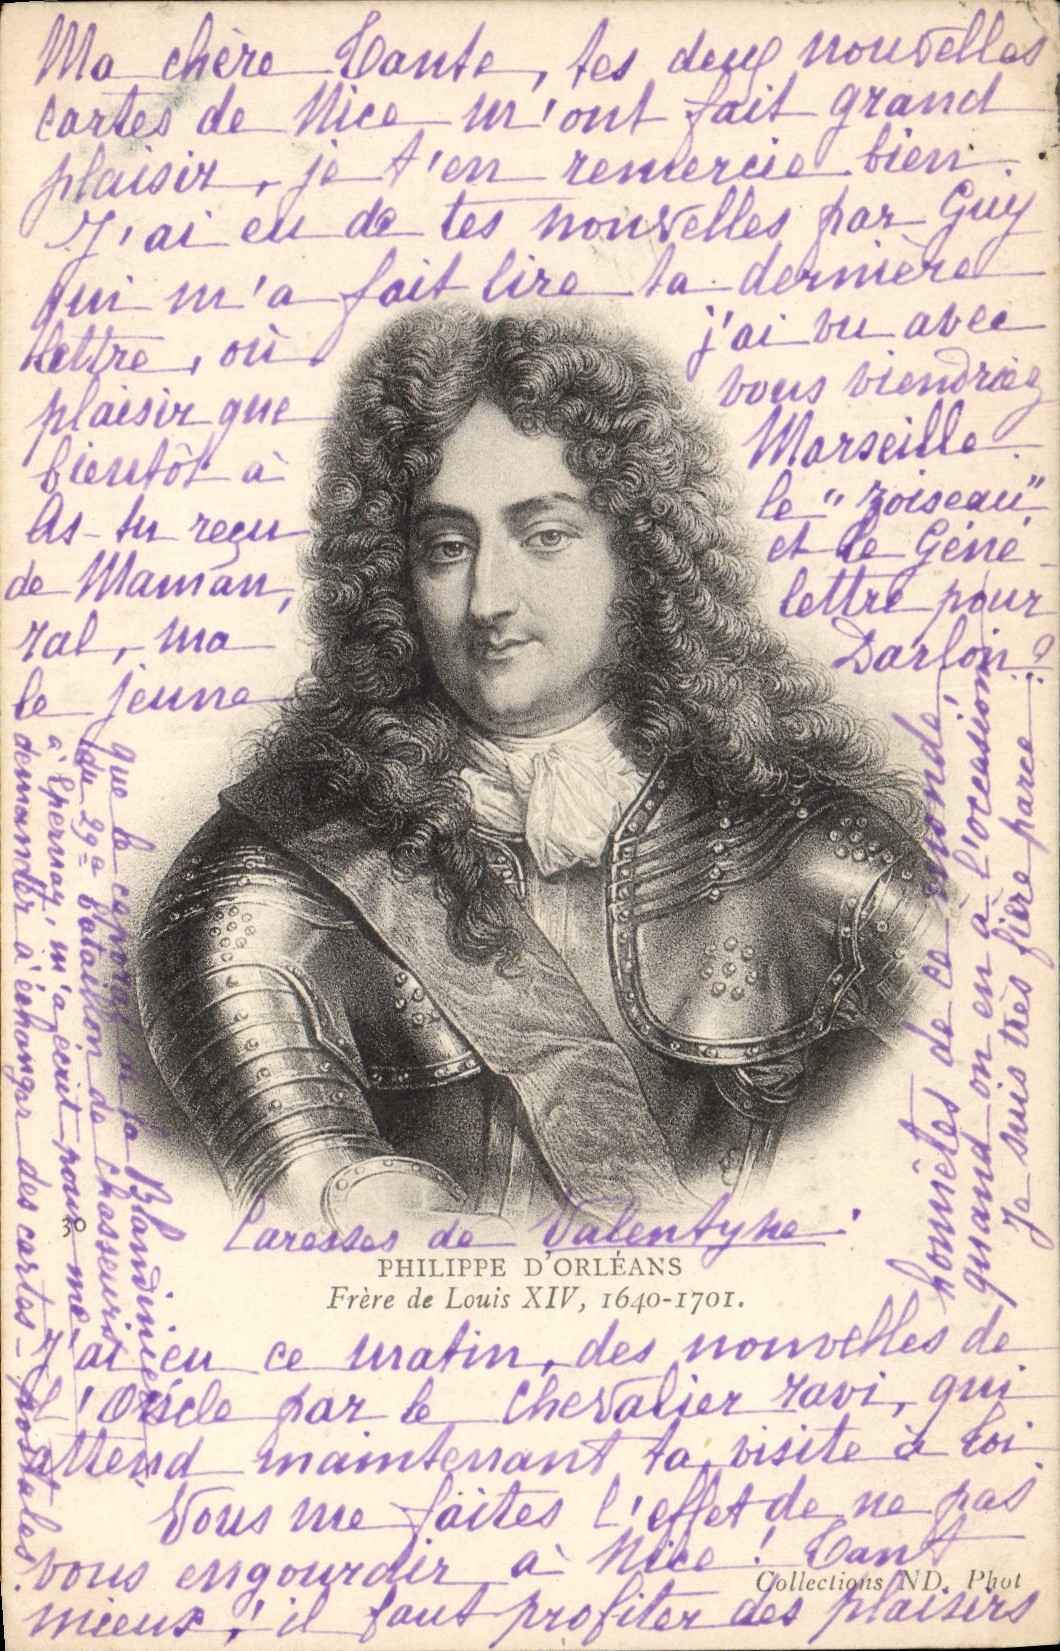 Ma chère Tante, tes deux nouvelles
cartes de Nice m'ont fait grand
plaisir, je t'en remercie bien.
J'ai eu de tes nouvelles par Guy
qui m'a fait lire ta dernière
lettre, où j'ai vu avec
plaisir que vous viendriez
bientôt à Marseille.
As-tu reçu le "zoiseau"
de Maman, et le Géné-
ral, ma lettre pour
le jeune Darloin?
J'ai eu ce matin, des nouvelles de
l'Oiscle par le Chevalier ravi, qui
attend maintenant ta visite à toi.
Vous me faites l'effet de ne pas
vous engourdir à Nice! Tant
mieux, il faut profiter des plaisirs
honnêtes de ce monde,
quand on en à l'occasion.
Je suis très fière parce
que le caporal de la Blandinière
du 29e bataillon de chasseurs
à Epernay, m'a écrit pour me
demander à échanger des cartes-postales.
Caresses de Valentyne.
30
PHILIPPE D'ORLÉANS
Frère de Louis XIV, 1640-1701.
Collections ND. Phot